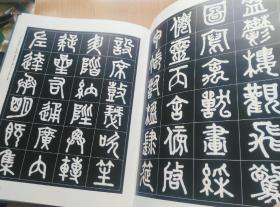 盤鬱樓觀飛驚
圖寫禽獸畫綵
僊靈丙舍傍啟
甲帳對楹肆筵
設席鼓瑟吹笙
升階納陛弁轉
疑星右通廣內
左達承明既集